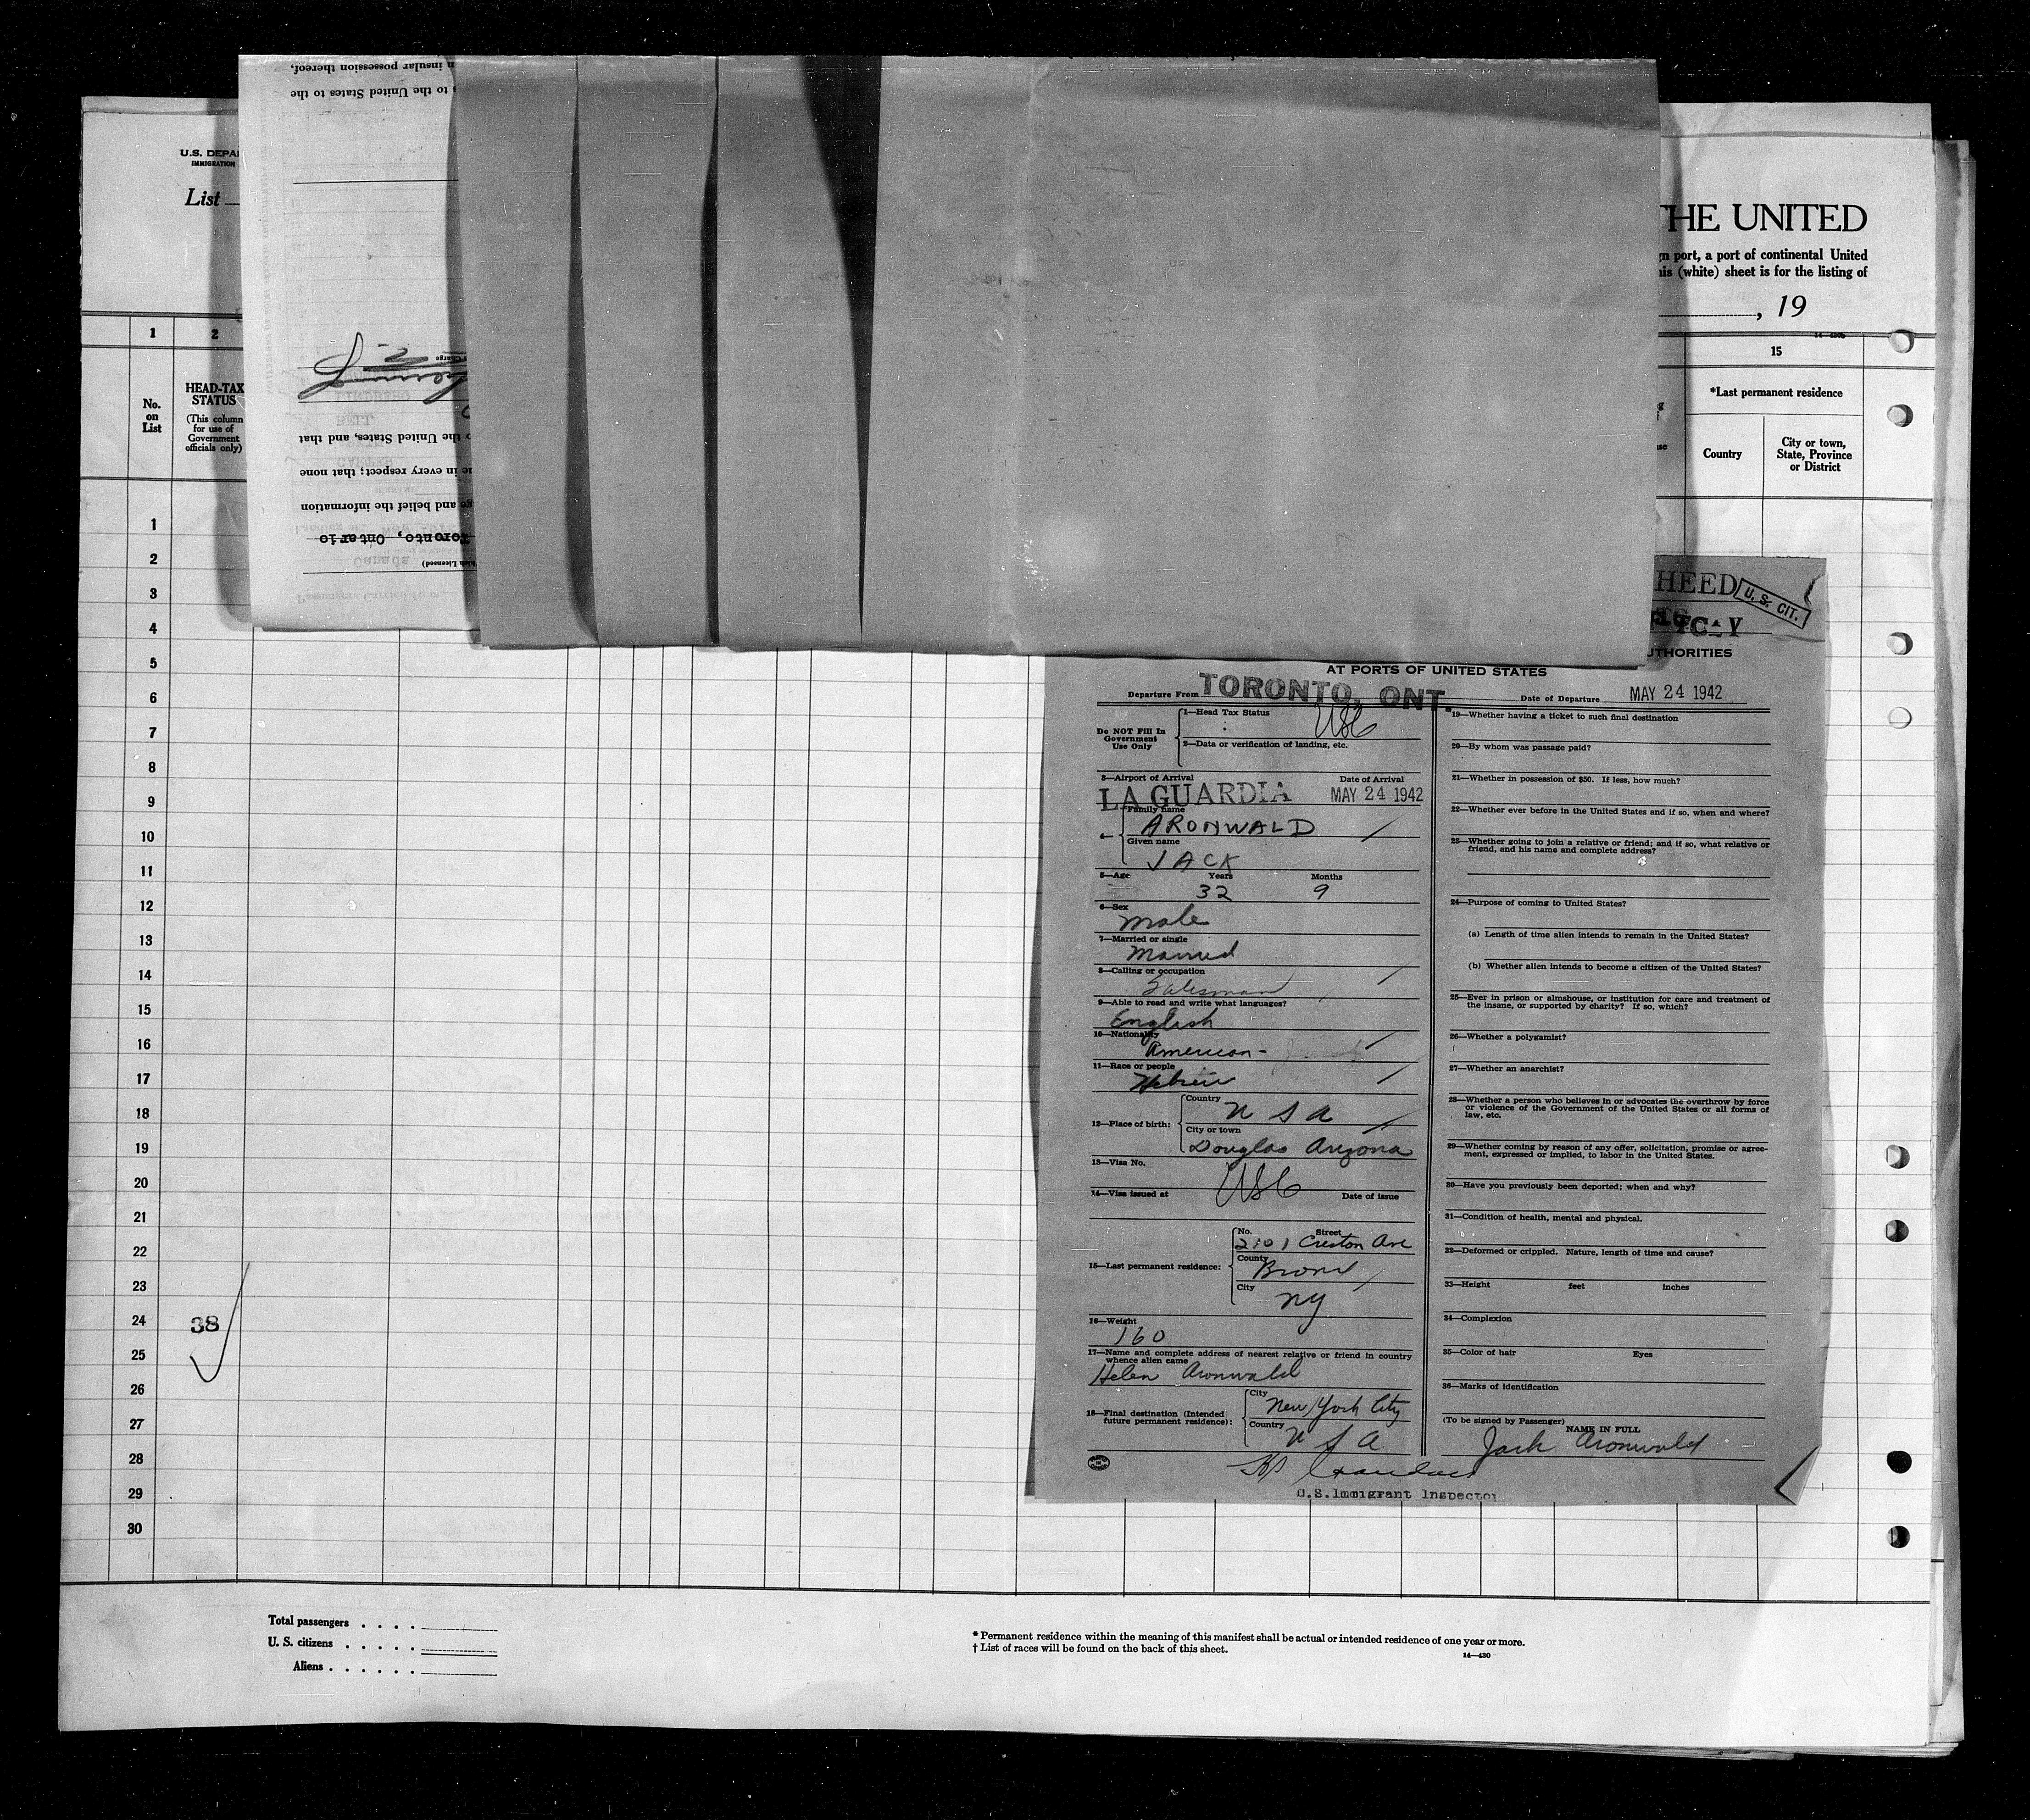 U.S. DEPA
IMMIGRATION
List
in insular possession thereof,
s to the United States to the
Charge
to the United States, and that
ue in every respect; that none
ge and belief the information
Toronto, Ontario
Canada
hich Licensed)
THE UNITED
gn port, a port of continental United
his (white) sheet is for the listing of
, 19
1
2
15
No.
on
List
HEAD-TAX
STATUS
(This column
for use of
Government
officials only)
*Last permanent residence
Country
City or town,
State, Province
or District
1
2
3
4
5
6
7
8
9
10
11
12
13
14
15
16
17
18
19
20
21
22
23
24
25
26
27
28
29
30
38
HEED
U. S. CIT.
UTHORITIES
AT PORTS OF UNITED STATES
Departure From TORONTO, ONT. Date of Departure MAY 24 1942
Do NOT Fill In
Government
Use Only
1—Head Tax Status USC
2—Data or verification of landing, etc.
3—Airport of Arrival Date of Arrival
LA GUARDIA MAY 24 1942
4—
Family name
ARONWALD
Given name
JACK
5—Age Years Months
32 9
6—Sex
Male
7—Married or single
Married
8—Calling or occupation
Salesman
9—Able to read and write what languages?
English
10—Nationality
American-
11—Race or people
Hebrew
12—Place of birth:
Country
U S A
City or town
Douglas Arizona
13—Visa No.
USC
14—Visa issued at Date of issue
15—Last permanent residence:
No. Street
2101 Creston Ave
County
Bronx
City
NY
16—Weight
160
17—Name and complete address of nearest relative or friend in country
whence alien came
Helen Aronwald
18—Final destination (Intended
future permanent residence):
City
New York City
Country
U S A
19—Whether having a ticket to such final destination
20—By whom was passage paid?
21—Whether in possession of $50. If less, how much?
22—Whether ever before in the United States and if so, when and where?
23—Whether going to join a relative or friend; and if so, what relative or
friend, and his name and complete address?
24—Purpose of coming to United States?
(a) Length of time alien intends to remain in the United States?
(b) Whether alien intends to become a citizen of the United States?
25—Ever in prison or almshouse, or institution for care and treatment of
the insane, or supported by charity? If so, which?
26—Whether a polygamist?
27—Whether an anarchist?
28—Whether a person who believes in or advocates the overthrow by force
or violence of the Government of the United States or all forms of
law, etc.
29—Whether coming by reason of any offer, solicitation, promise or agree-
ment, expressed or implied, to labor in the United States.
30—Have you previously been deported; when and why?
31—Condition of health, mental and physical.
32—Deformed or crippled. Nature, length of time and cause?
33—Height feet inches
34—Complexion
35—Color of hair Eyes
36—Marks of identification
(To be signed by Passenger)
NAME IN FULL
Jack Aronwald
U.S.Immigrant Inspector
Total passengers . . . .
U. S. citizens . . . . .
Aliens . . . . . .
* Permanent residence within the meaning of this manifest shall be actual or intended residence of one year or more.
† List of races will be found on the back of this sheet.
14—430